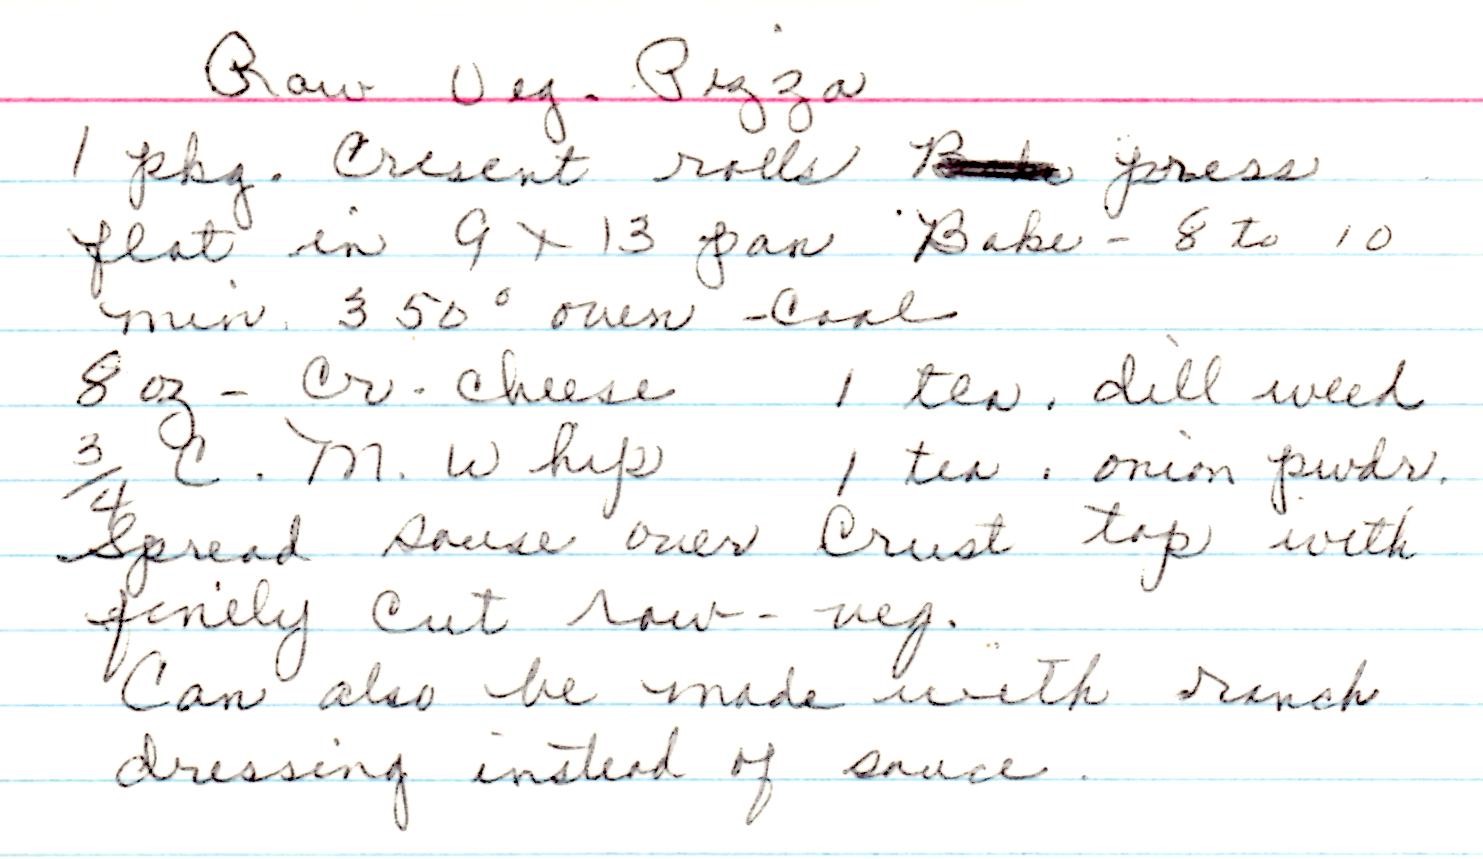 Raw Veg. Pizza
1 pkg. Cresent rolls press
flat in 9 x 13 pan Bake - 8 to 10
min. 350° oven - Cool
8 oz - Cr. cheese 1 tea. dill weed
3/4 C. M. Whip 1 tea. onion pwdr.
Spread sause over Crust top with
finely cut raw - veg.
Can also be made with ranch
dressing instead of sauce.